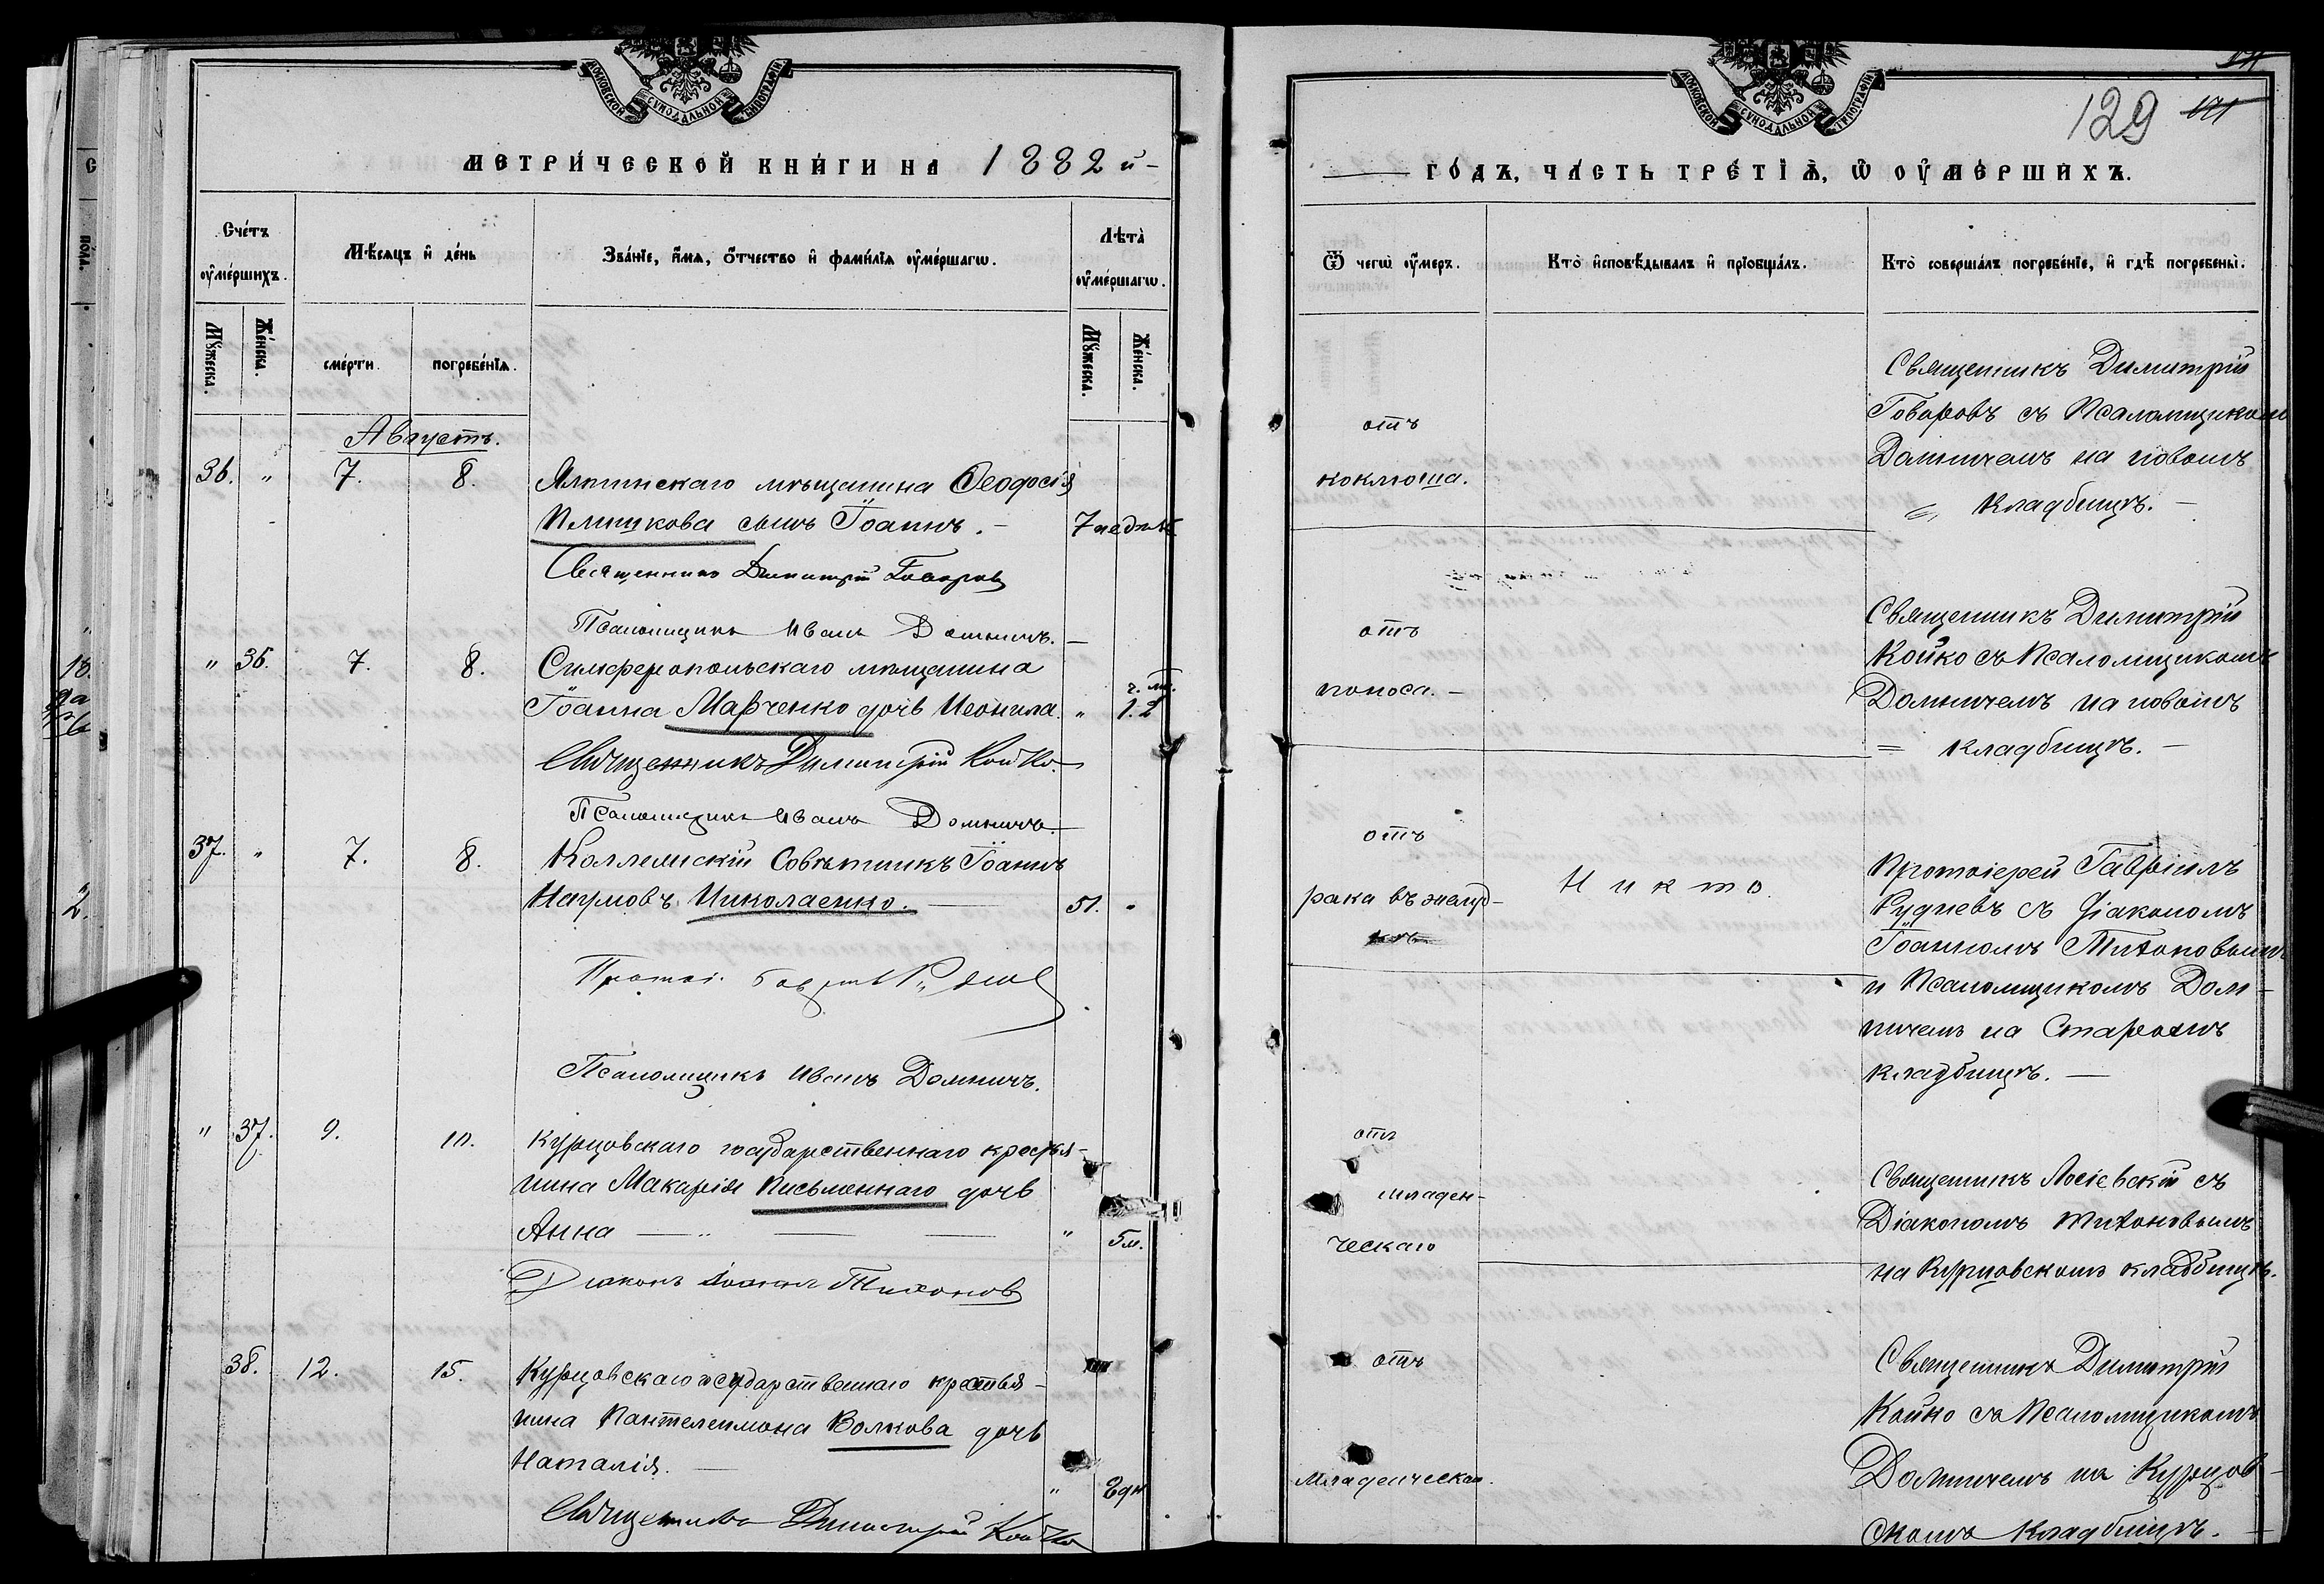 МОСКОВСКОЙ СѴНОДАЛЬНОЙ ТИПОГРАФІИ
МЕТРИ́ЧЕСКОЙ КНИ́ГИ НА 1882 й
Сче́тъ ᲂу҆ме́ршихъ.
Мѣ́сяцъ и҆ де́нь
Зва́нїе, и҆́мя, ѻ҆́тчество и҆ фами́лїя ᲂу҆ме́ршагѡ.
Лѣта̀ ᲂу҆ме́ршагѡ.
Мꙋ́жеска.
Же́нска.
сме́рти.
погребе́нїѧ.
Мꙋ́жеска.
Же́нска.
Августъ.
36. " 7. 8. Ялтинскаго мѣщанина Ѳеодосія
Плышкова сынъ Іоаннъ. 7 недѣль
Священникъ Димитрій Говоровъ
Псаломщикъ Иванъ Домничъ.
" 36. 7. 8. Симферопольскаго мѣщанина
Іоанна Марченко дочь Неонила. " г. м. 1. 2
Священникъ Димитрій Койко.
Псаломщикъ Иванъ Домничъ.
37. " 7. 8. Коллежскій Совѣтникъ Іоаннъ
Наумовъ Николаенко. 51. "
Протоі. Гавріилъ Рудневъ
Псаломщикъ Иванъ Домничъ.
" 37. 9. 10. Курцовскаго государственнаго крестья-
нина Макарія Письменнаго дочь
Анна " 5 м.
Діаконъ Іоаннъ Тихоновъ
38. 12. 15. Курцовскаго государственнаго крестья-
нина Пантелеимона Волкова дочь
Наталія. " 2 дн
Священникъ Димитрій Койко
МОСКОВСКОЙ СѴНОДАЛЬНОЙ ТИПОГРАФІИ
129 171
ГО́ДЪ, ЧА́СТЬ ТРЕ́ТІѦ, Ѡ҆ ОУ҆МЕ́РШИХЪ.
Ѿ чегѡ̀ ᲂу҆́меръ.
Кто̀ и҆сповѣ́дывалъ и҆ прїѡбща́лъ.
Кто̀ соверша́лъ погребе́нїе, и҆ гдѣ̀ погребены̀.
отъ
коклюша.
Священникъ Димитрій
Говоровъ съ Псаломщикомъ
Домничемъ на новомъ
Кладбищѣ.
отъ
поноса.
Священникъ Димитрій
Койко съ Псаломщикомъ
Домничемъ на новомъ
Кладбищѣ.
отъ
рака въ желуд-
кѣ
Никто.
Протоіерей Гавріилъ
Рудневъ съ Діакономъ
Іоанномъ Тихоновымъ
и Псаломщикомъ Дом-
ничемъ на Старомъ
кладбищѣ.
отъ
младен-
ческаго
Священникъ Лосіевскій съ
Діакономъ Тихоновымъ
на Курцовскомъ кладбищѣ.
отъ
младенческаго.
Священникъ Димитрій
Койко съ Псаломщикомъ
Домничемъ на Курцов-
скомъ Кладбищѣ.